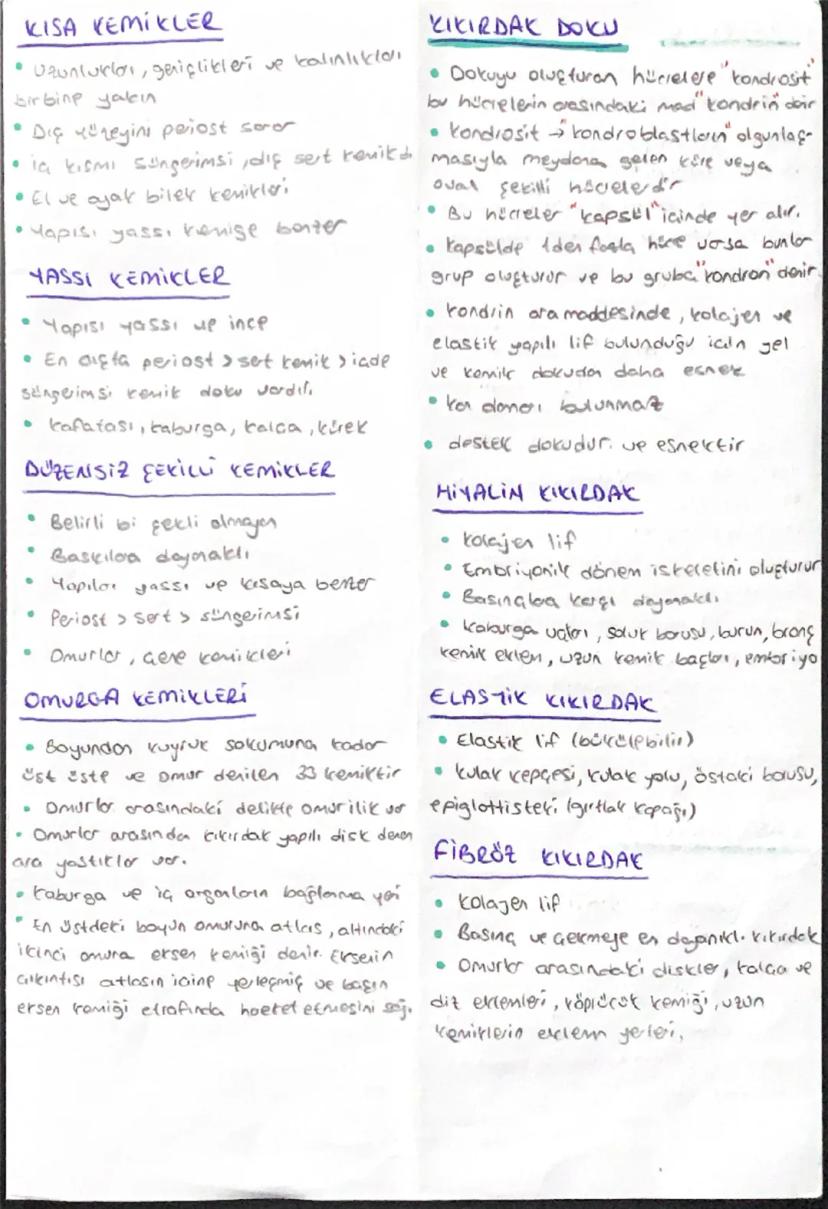 KISA KEMİKLER
• Uzunlukları, genişlikleri ve kalınlıkları
birbine yakın
• Dış yüzeyini periost sarar
• iç kısmı süngerimsi, dış sert kemik
• El ve ayak bilek kemikleri
• Yapısı yassı kemiğe benzer
YASSI KEMİKLER
• Yapısı yassı ve ince
• En dışta periost > sert kemik > içde
süngerimsi kemik doku vardır.
• kafatası, kaburga, kalça, kürek
DÜZENSİZ ŞEKİLLİ KEMİKLER
• Belirli bi şekli olmayan
• Baskılara dayanaklı
• Yapıları yassı ve kısaya benzer
• Periost > sert > süngerimsi
• Omurlar, çene kemikleri
OMURGA KEMİKLERİ
• Boyundan kuyruk sokumuna kadar
üst üste ve omur denilen 33 kemiktir
• Omurlar arasındaki delikte omurilik var
• Omurlar arasında kıkırdak yapılı disk denen
ara yastıklar var.
• kaburga ve iç organların bağlanma yeri
• En üstdeki boyun omuruna atlas, altındaki
ikinci omura eksen kemiği denir. Eksenin
çıkıntısı atlasın içine yerleşmiş ve başın
eksen kemiği etrafında hareket etmesini sağ.
KIKIRDAK DOKU
• Dokuyu oluşturan hücrelere "kondrosit"
bu hücrelerin arasındaki mad "kondrin" denir
• kondrosit → "kondroblastların" olgunlaş-
masıyla meydana gelen küre veya
oval şekilli hücrelerdir
• Bu hücreler "kapsül" içinde yer alır.
• kapsülde 1den fazla hücre varsa bunlar
grup oluşturur ve bu gruba "kondron" denir.
• kondrin ara maddesinde, kolajen ve
elastik yapılı lif bulunduğu için jel
ve kemik dokudan daha esnek
• kan damarı bulunmaz
• destek dokudur. ve esnektir
HİYALİN KIKIRDAK
• kolajen lif
• Embriyonik dönem iskeletini oluşturur
• Basınçlara karşı dayanaklı
• kaburga uçları, soluk borusu, burun, bronş
kemik eklem, uzun kemik başları, embriyo
ELASTİK KIKIRDAK
• Elastik lif (bükülebilir)
• kulak kepçesi, kulak yolu, östaki borusu,
epiglottisteki (gırtlak kapağı)
FİBRÖZ KIKIRDAK
• kolajen lif
• Basınç ve çekmeye en dayanıklı kıkırdak
• Omurlar arasındaki diskler, kalça ve
diz eklemleri, köprücük kemiği, uzun
kemiklerin eklem yerleri,